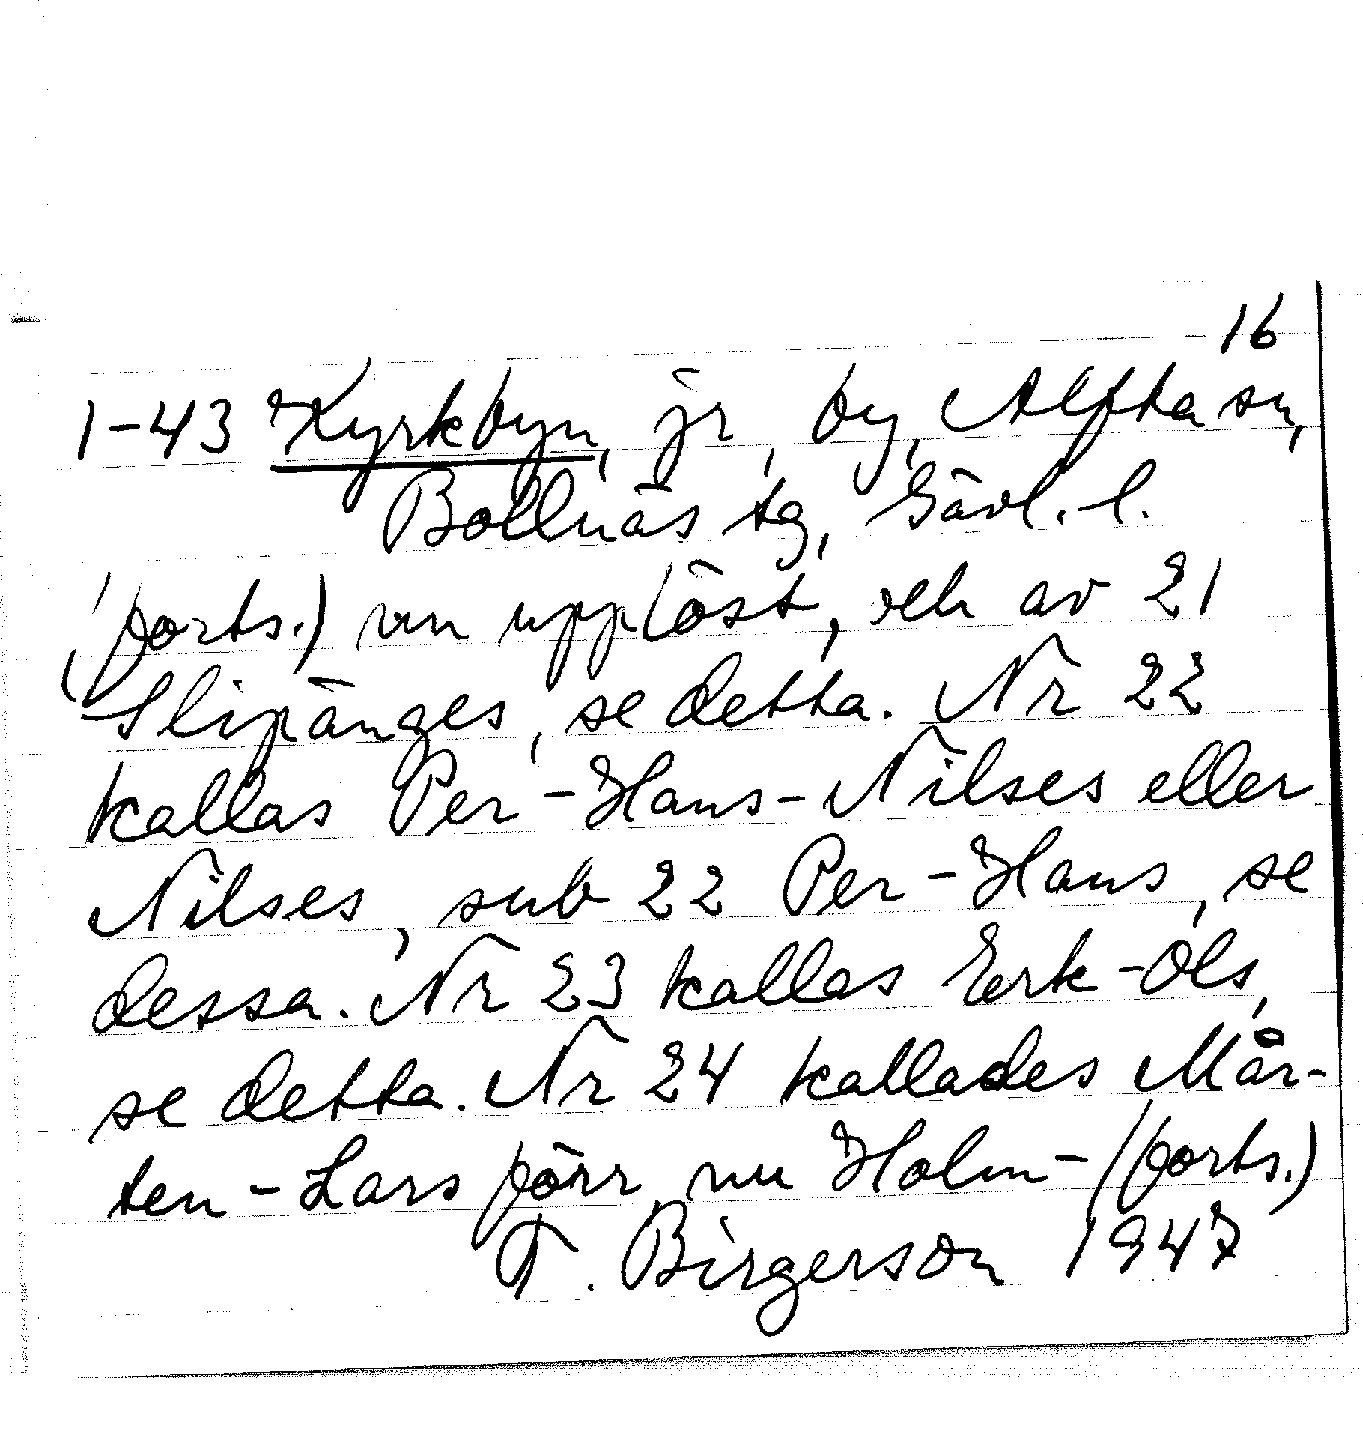 16
1-43 Kyrkbyn, jr, by, Alfta sn,
Bollnäs tg, Gävl. l.
(forts.) nu upplöst, och av 21
Slipänges, se detta. Nr 22
kallas Per-Hans-Nilses eller
Nilses, sub 22 Per-Hans, se
dessa. Nr 23 kallas Erk-Ols,
se detta. Nr 24 kallades Mår-
ten-Lars förr, nu Holm- (forts.)
T. Birgerson 1947